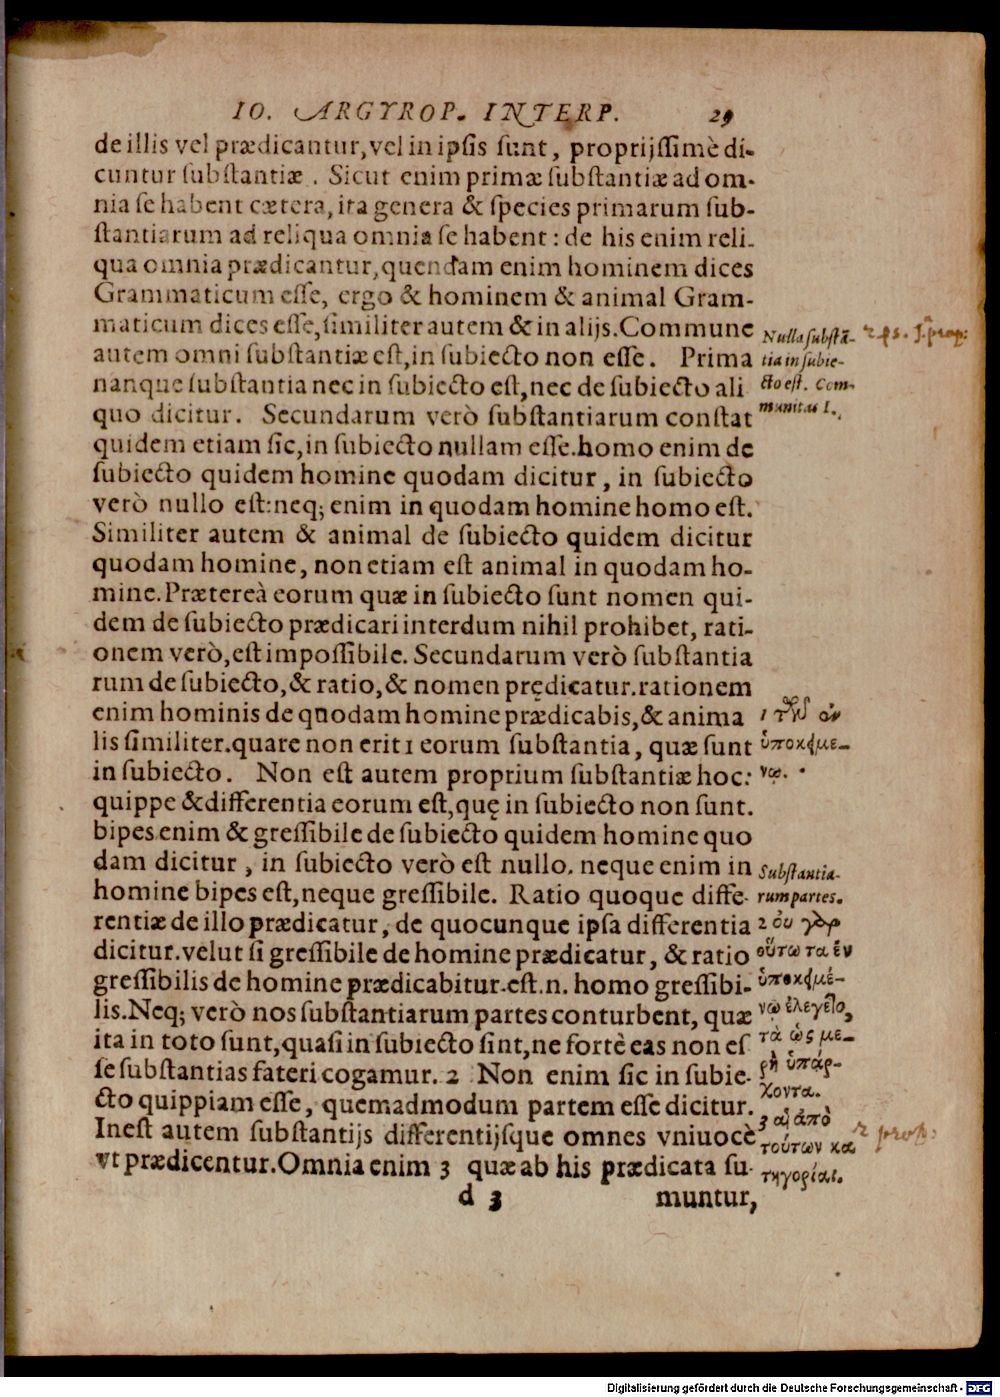 IO. ARGYROP. INTERP. 29
de illis vel prædicantur, vel in ipsis sunt, proprijssimè di-
cuntur substantiæ. Sicut enim primæ substantiæ ad om-
nia se habent cætera, ita genera & species primarum sub-
stantiarum ad reliqua omnia se habent: de his enim reli-
qua omnia prædicantur, quendam enim hominem dices
Grammaticum esse, ergo & hominem & animal Gram-
maticum dices esse, similiter autem & in alijs. Commune
autem omni substantiæ est, in subiecto non esse. Prima
nanque substantia nec in subiecto est, nec de subiecto ali
quo dicitur. Secundarum verò substantiarum constat
quidem etiam sic, in subiecto nullam esse. homo enim de
subiecto quidem homine quodam dicitur, in subiecto
verò nullo est: neq; enim in quodam homine homo est.
Similiter autem & animal de subiecto quidem dicitur
quodam homine, non etiam est animal in quodam ho-
mine. Prætereà eorum quæ in subiecto sunt nomen qui-
dem de subiecto prædicari interdum nihil prohibet, rati-
onem verò, est impossibile. Secundarum verò substantia
rum de subiecto, & ratio, & nomen prędicatur. rationem
enim hominis de quodam homine prædicabis, & anima
lis similiter. quare non erit 1 eorum substantia, quæ sunt
in subiecto. Non est autem proprium substantiæ hoc:
quippe & differentia eorum est, quę in subiecto non sunt.
bipes enim & gressibile de subiecto quidem homine quo
dam dicitur, in subiecto verò est nullo. neque enim in
homine bipes est, neque gressibile. Ratio quoque diffe-
rentiæ de illo prædicatur, de quocunque ipsa differentia
dicitur. velut si gressibile de homine prædicatur, & ratio
gressibilis de homine prædicabitur. est .n. homo gressibi-
lis. Neq; verò nos substantiarum partes conturbent, quæ
ita in toto sunt, quasi in subiecto sint, ne fortè eas non es
se substantias fateri cogamur. 2 Non enim sic in subie-
cto quippiam esse, quemadmodum partem esse dicitur.
Inest autem substantijs differentijsque omnes vniuocè
vt prædicentur. Omnia enim 3 quæ ab his prædicata su-
d 3 muntur,
Nulla substã-
tia in subie-
cto est. Com-
munitas 1.
1 τῶν ἐν
ὑποκειμέ-
νῳ.
Substantia-
rum partes.
2 οὐ γὰρ
οὕτω τὰ ἐν
ὑποκειμέ-
νῳ ἐλέγετο,
τὰ ὡς μέ-
ρη ὑπάρ-
χοντα.
3 αἱ ἀπὸ
τούτων κα
τηγορίαι.
2 prop:
Digitalisierung gefördert durch die Deutsche Forschungsgemeinschaft - DFG